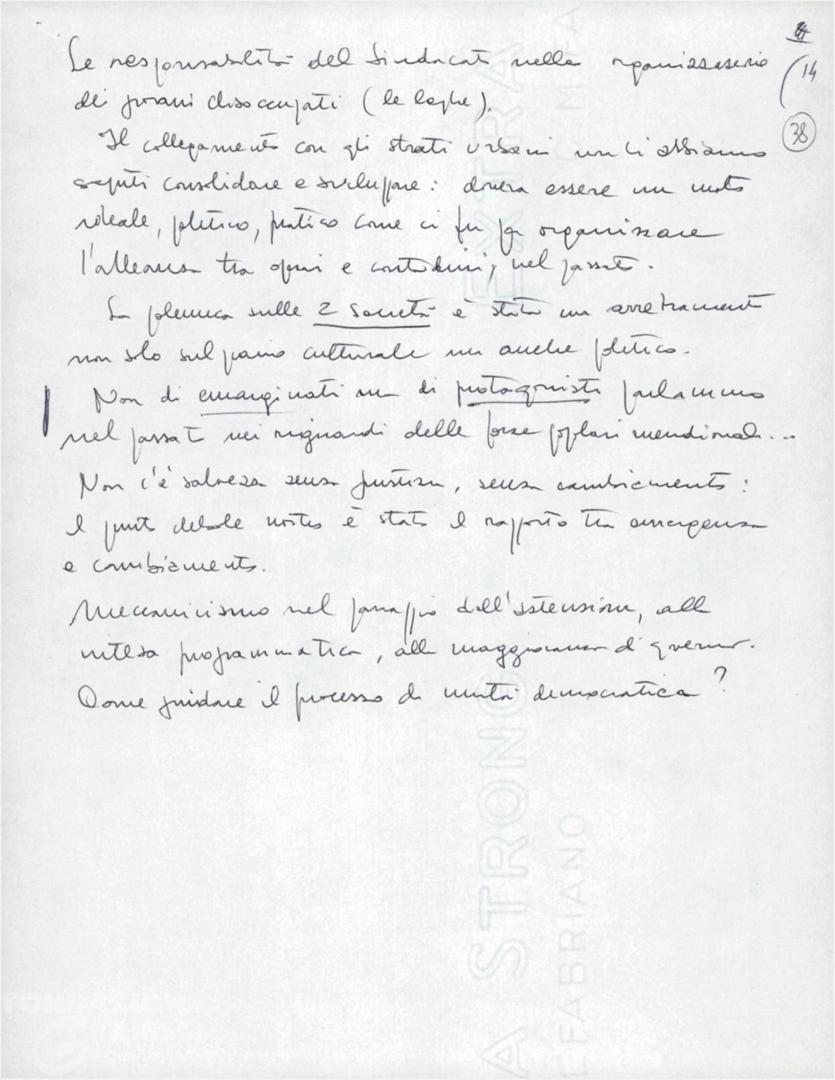 8
14
38
Le responsabilità del Sindacato nella organizzazione
dei giovani disoccupati (le leghe).
Il collegamento con gli strati urbani non li abbiamo
saputi consolidare e sviluppare: doveva essere un moto
ideale, politico, pratico come ci fu per organizzare
l'alleanza tra operai e contadini, nel passato.
La polemica sulle 2 società è stato un arretramento
non solo sul piano culturale ma anche politico.
Non di emarginati ma di protagonisti parlammo
nel passato nei riguardi delle forze popolari meridionali...
Non c'è salvezza senza giustizia, senza cambiamento:
il punto debole nostro è stato il rapporto tra emergenza
e cambiamento.
Meccanicismo nel passaggio dall'astensione, alla
intesa programmatica, alla maggioranza di governo.
Come guidare il processo di unità democratica?
A STRONG EXTRA
FABRIANO